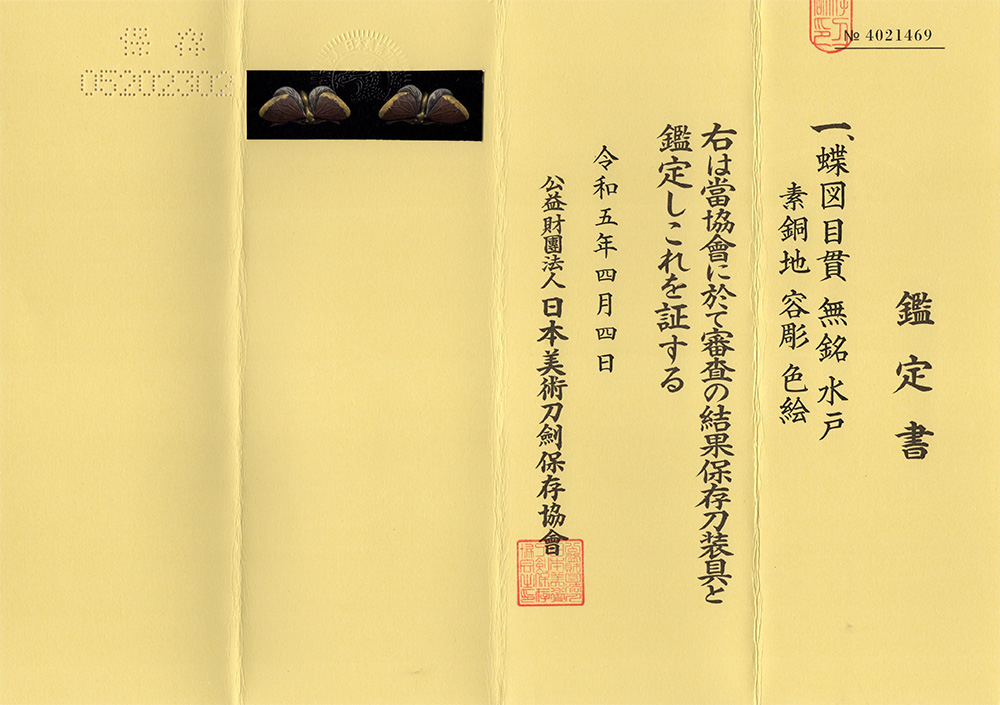 № 4021469
鑑定書
一、蝶図目貫 無銘 水戸
素銅地 容彫 色絵
右は當協會に於て審査の結果保存刀装具と
鑑定しこれを証する
令和五年四月四日
公益財團法人 日本美術刀劍保存協會
保存
05202302